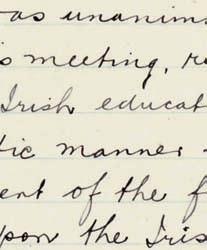 as unanim
s meeting, r
Irish educat
tic manner
ent of the f
pon the Iris